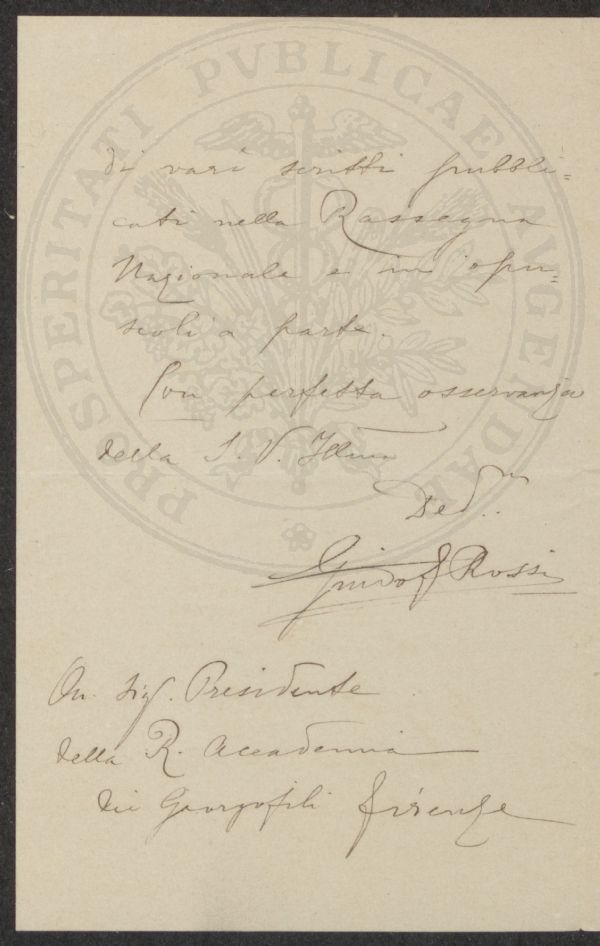 PROSPERITATI PVBLICAE AVGENDAE
di vari scritti pubbli=
cati nella Rassegna
Nazionale e in opu=
scoli a parte.
Con perfetta osservanza
della S. V. Illma
Ded.mo
Guido Rossi
On. Sig. Presidente
della R. Accademia
dei Georgofili Firenze